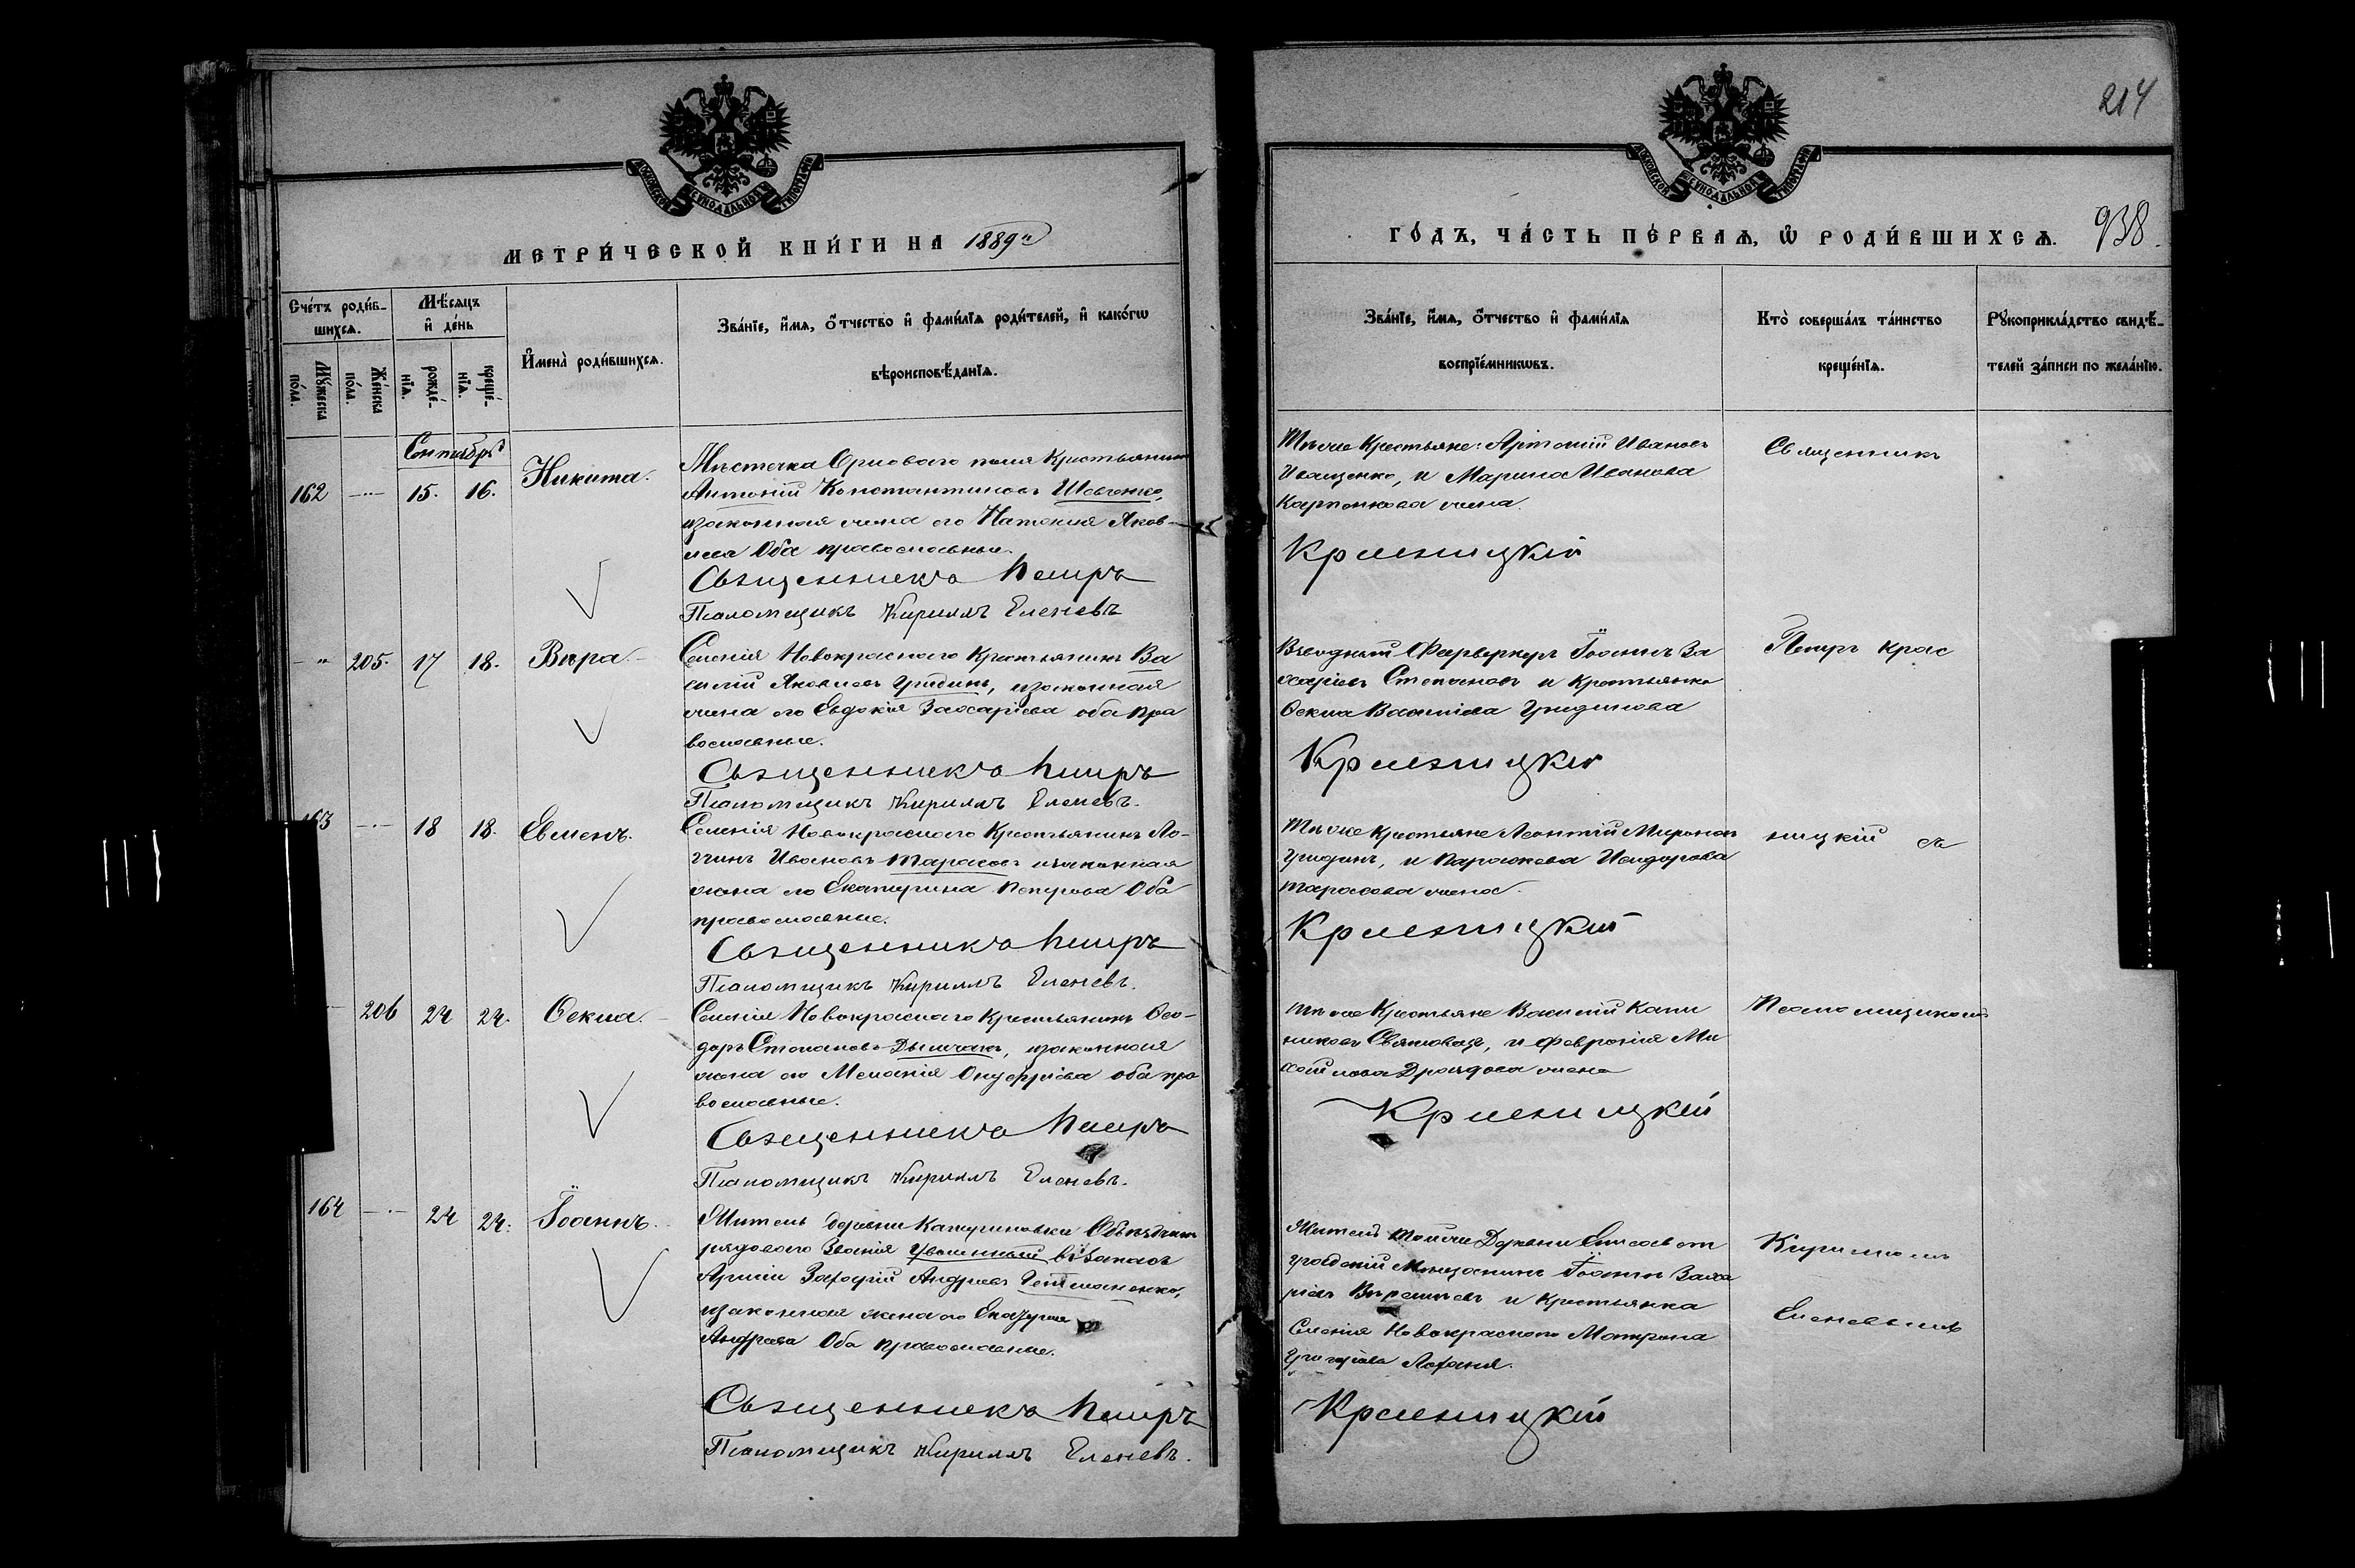 214
МОСКОВСКОЙ СУНОДАЛЬНОЙ ТИПОГРАФІИ
МОСКОВСКОЙ СУНОДАЛЬНОЙ ТИПОГРАФІИ
МЕТРИ́ЧЕСКОЙ КНИ́ГИ НА 1889й
ГО́ДЪ, ЧА́СТЬ ПЕ́РВАѦ, Ѡ РОДИ́ВШИХСѦ. 938.
Сче́тъ роди́в-
шихсѧ.
Мꙋ́жеска по́ла.
Же́нска по́ла.
Мѣ́сѧцъ
и҆ де́нь
рожде́-нїѧ.
креще́-нїѧ.
И҆мена̀ роди́вшихсѧ.
Зва́нїе, и҆́мѧ, ѻ҆́тчество и҆ фами́лїѧ роди́телей, и҆ како́гѡ
вѣроисповѣ́данїѧ.
Зва́нїе, и҆́мѧ, ѻ҆́тчество и҆ фами́лїѧ
воспрїе́мникѡвъ.
Кто̀ соверша́лъ та́инство
креще́нїѧ.
Рꙋкоприкла́дство свидѣ́-
телей за́писи по жела́нїю.
Сентябрь
162 15. 16. Никита.
Мѣстечка Орловаго поля Крестьянинъ
Антоній Константиновъ Шевченко,
изаконная жена его Наталія Яков-
лева Оба православные.
Священникъ Петръ
Псаломщикъ Кириллъ Еленевъ
Тѣ же Крестьяне: Артемій Ивановъ
Иващенко, и Марина Иванова
Карпенкова жена.
Красницкій
Священникъ
205. 17 18. Вѣра.
Селенія Новокраснаго Крестьянинъ Ва
силій Яковлевъ Гридинъ, изаконная
жена его Евдокія Захаріева оба пра
вославные.
Священникъ Петръ
Псаломщикъ Кириллъ Еленевъ.
Взводный Фейерверкеръ Іоаннъ За
харіевъ Степановъ и Крестьянка
Ѳекла Васильева Гридинова
Красницкій
Петръ Крас
163 18 18. Евменъ.
Селенія Новокраснаго Крестьянинъ Ло-
ггинъ Ивановъ Тарасовъ изаконная
жена его Екатерина Петрова Оба
православные.
Священникъ Петръ
Псаломщикъ Кириллъ Еленевъ.
Тѣ же Крестьяне Леонтій Мироновъ
Гридинъ, и Параскева Исидорова
Тарасова жена.
Красницкій
ницкій съ
206 24 24. Ѳекла.
Селенія Новокраснаго Крестьянинъ Ѳео-
доръ Степановъ, изаконная
жена его Меланія Онуфріева оба пра
вославные.
Священникъ Петръ
Псаломщикъ Кириллъ Еленевъ.
Тѣ же Крестьяне Василій Кали
никовъ, и Февронія Ми
хайлова Дроздова жена
Красницкій
Псаломщикомъ
164 24 24. Іоаннъ.
Житель деревни Катериновки
рядоваго Званія уволенный въ Запасъ
Арміи Андреевъ Гетманенко,
изаконная жена его Екатерина
Андреева Оба православные.
Священникъ Петръ
Псаломщикъ Кириллъ Еленевъ.
Житель тойже Деревни Елисавет
градскій Мѣщанинъ Іоаннъ Заха
ріевъ и Крестьянка
Селенія Новокраснаго Матрона
Григорьева.
Красницкій
Кирилломъ
Еленевымъ